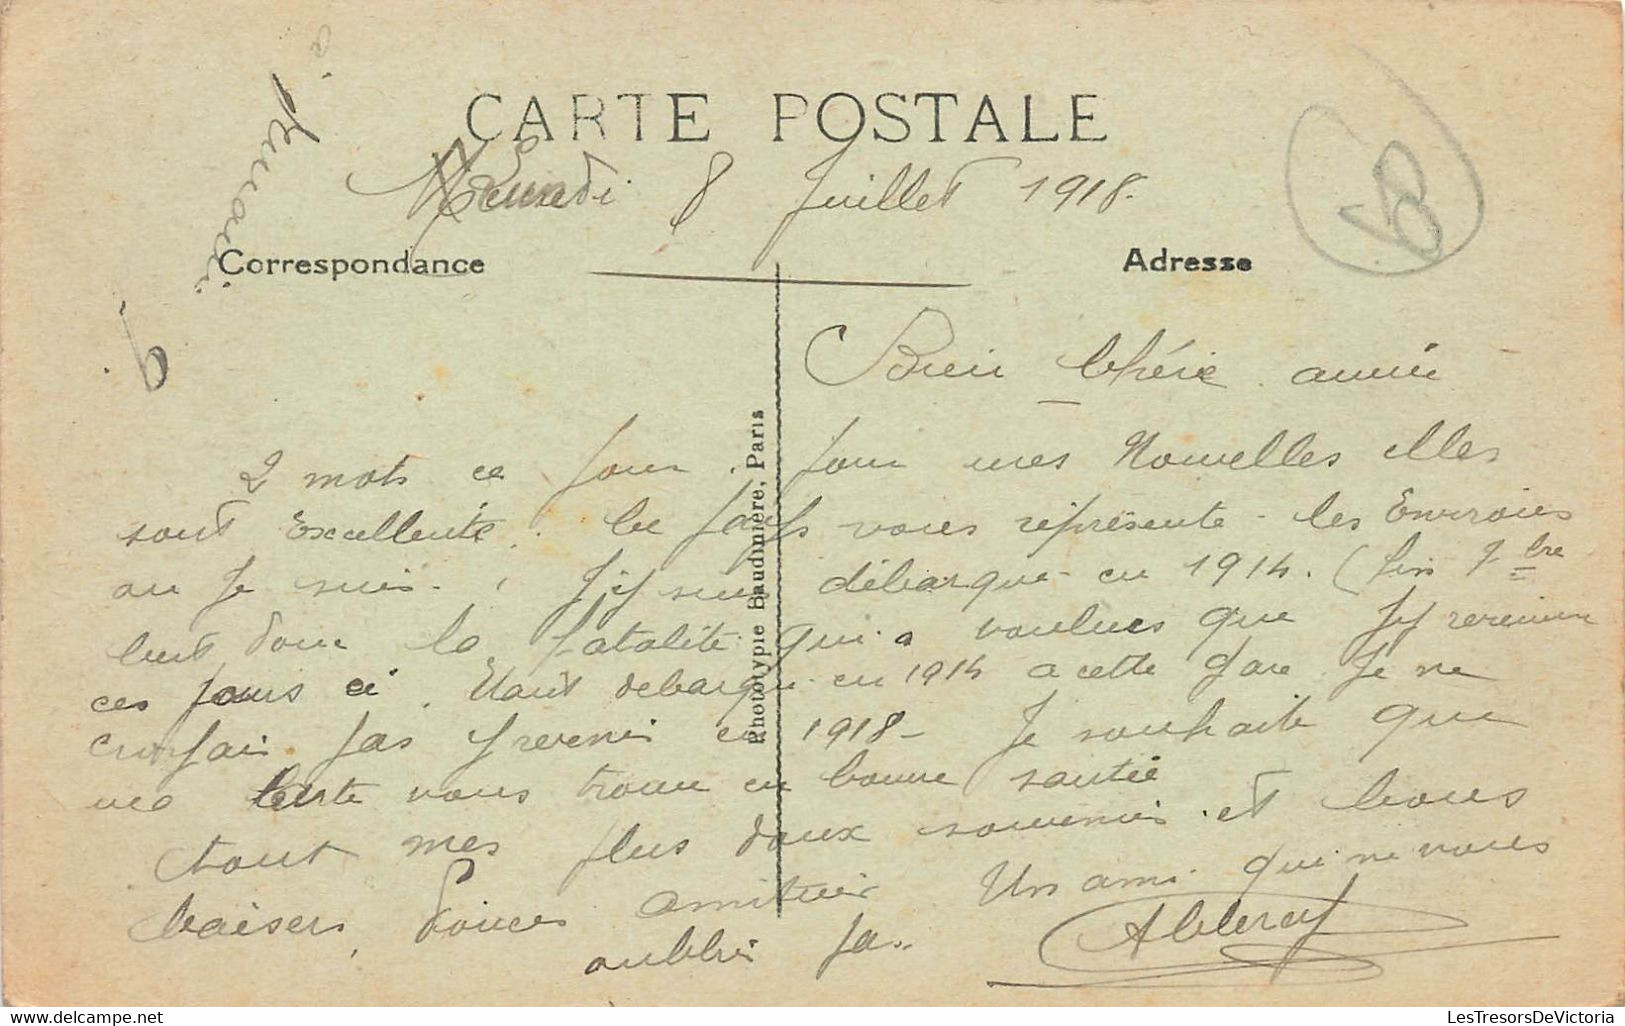 CARTE POSTALE
8 Juillet 1918.
Correspondance
Adresse
Bien Chérie amie
2 mots ce jour. pour mes Nouvelles elles
sont Excellente. Ce pays vous représente les Environs
ou je suis. J'y suis débarqué en 1914. (fin 7bre
C'est donc la fatalité qui a voulues que j'y reviennne
ces jours ci. Etant debarqué en 1914 a cette gare Je ne
pas y revenir en 1918 - Je souhaite que
ma Carte vous trouve en bonne santée
tout mes plus doux souvenirs et bons
baisers, douces amitiés Un ami qui ne vous
oublie pas..
A Cleray
Phototypie Baudinière, Paris
9
LesTresorsDeVictoria
www.delcampe.net